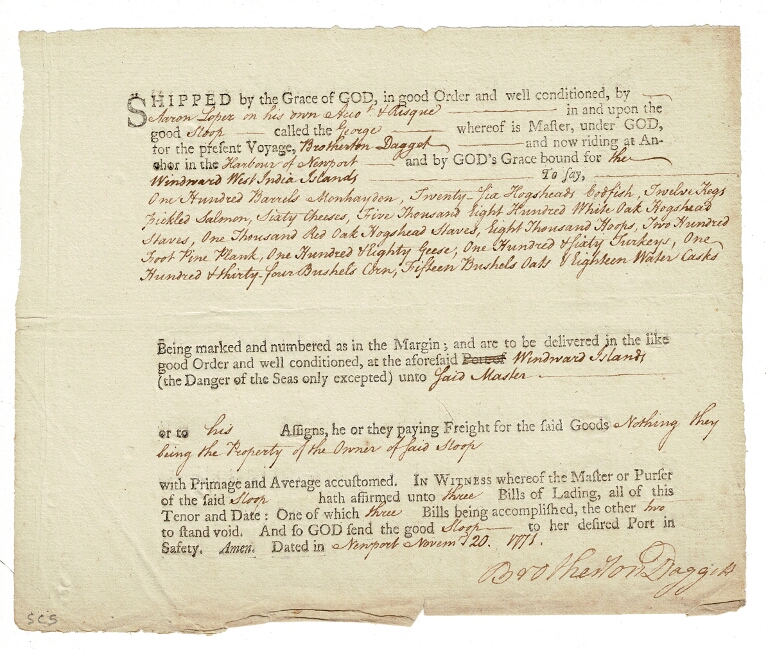 SHIPPED by the Grace of GOD, in good Order and well conditioned, by
Aaron Lopez on his own Acco.t & Risque in and upon the
good Sloop called the George whereof is Master, under GOD,
for the present Voyage, Brotherton Daggot and now riding at An-
chor in the Harbour of Newport and by GOD's Grace bound for the
Windward West India Islands To say,
One Hundred Barrels Menhayden, Twenty-Six Hogsheads Codfish, Twelve Kegs
Pickled Salmon, Sixty Cheeses, Five Thousand Eight Hundred White Oak Hogshead
Staves, One Thousand Red Oak Hogshead Staves, Eight Thousand Hoops, Two Hundred
Foot Pine Plank, One Hundred & Eighty Geese, One Hundred & Sixty Turkeys, One
Hundred & thirty-four Bushels Corn, Fifteen Bushels Oats & Eighteen Water Casks
Being marked and numbered as in the Margin; and are to be delivered in the like
good Order and well conditioned, at the aforesaid Port of Windward Islands
(the Danger of the Seas only excepted) unto Said Master
or to his Assigns, he or they paying Freight for the said Goods Nothing they
being the Property of the Owner of said Sloop
with Primage and Average accustomed. IN WITNESS whereof the Master or Purser
of the said Sloop hath affirmed unto three Bills of Lading, all of this
Tenor and Date: One of which three Bills being accomplished, the other two
to stand void. And so GOD send the good Sloop to her desired Port in
Safety. Amen. Dated in Newport Novem.r 20. 1771.
Brotherton Daggett
SCS